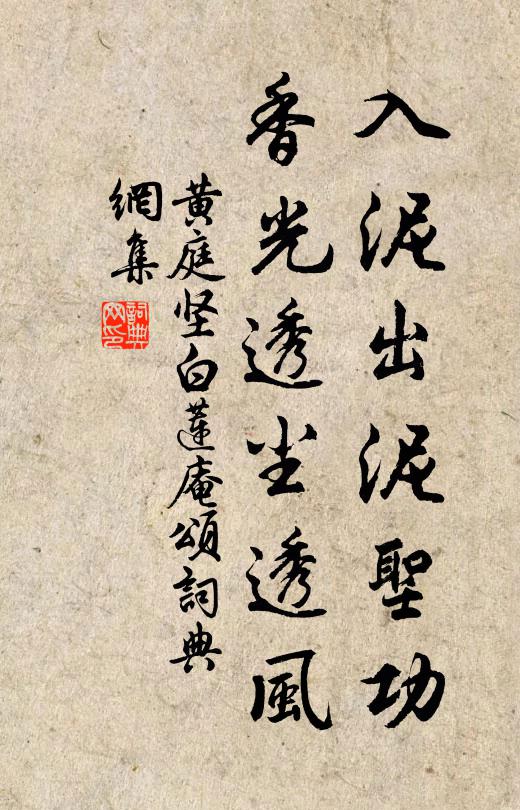 入泥出泥聖功
香光透尘透風
黄庭坚白蓮庵頌詞典
網集
詞典
网印